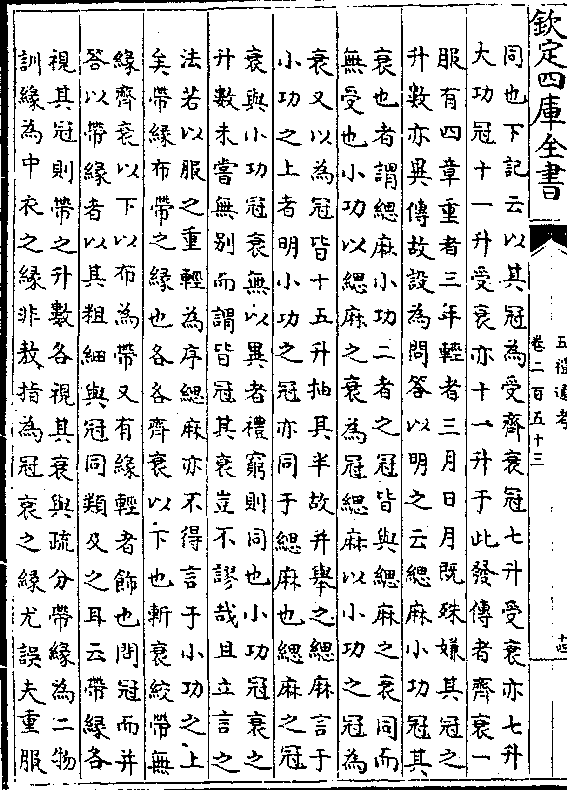 欽定四庫全書
五禮通考
卷二百五十三
十四
同也下記云以其冠為受齊衰冠七升受衰亦七升
大功冠十一升受衰亦十一升于此發傳者齊衰一
服有四章重者三年輕者三月日月既殊嫌其冠之
升數亦異傳故設為問答以明之云緦麻小功冠其
衰也者謂緦麻小功二者之冠皆與緦麻之衰同而
無受也小功以緦麻之衰為冠緦麻以小功之冠為
衰又以為冠皆十五升抽其半故并舉之緦麻言于
小功之上者明小功之冠亦同于緦麻也緦麻之冠
衰與小功冠衰無以異者禮窮則同也小功冠衰之
升數未嘗無別而謂皆冠其衰豈不謬哉且立言之
法若以服之重輕為序緦麻亦不得言于小功之上
矣帶緣布帶之緣也各各齊衰以下也斬衰絞帶無
緣齊衰以下以布為帶又有緣輕者飾也問冠而并
答以帶緣者以其粗細與冠同類及之耳云帶緣各
視其冠則帶之升數各視其衰與疏分帶緣為二物
訓緣為中衣之緣非敖指為冠衰之緣尤誤夫重服